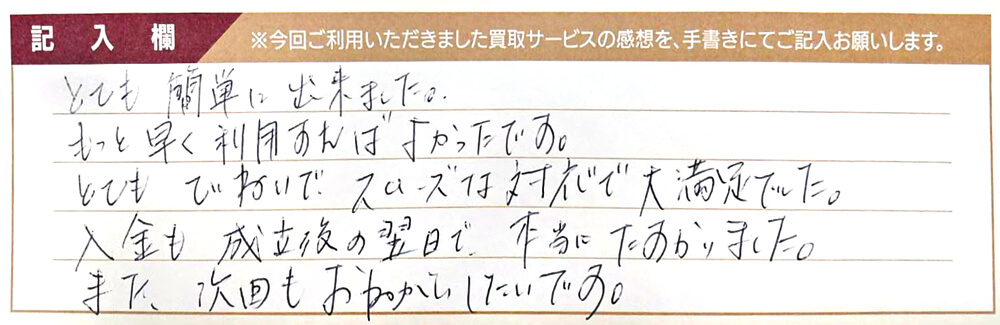 記入欄
※今回ご利用いただきました買取サービスの感想を、手書きにてご記入お願いします。
とても 簡単に 出来ました。
もっと 早く 利用すればよかったです。
とても ていねいで スムーズな 対応で 大満足でした。
入金も 成立後の翌日で、本当に たすかりました。
また、次回も おねがいしたいです。